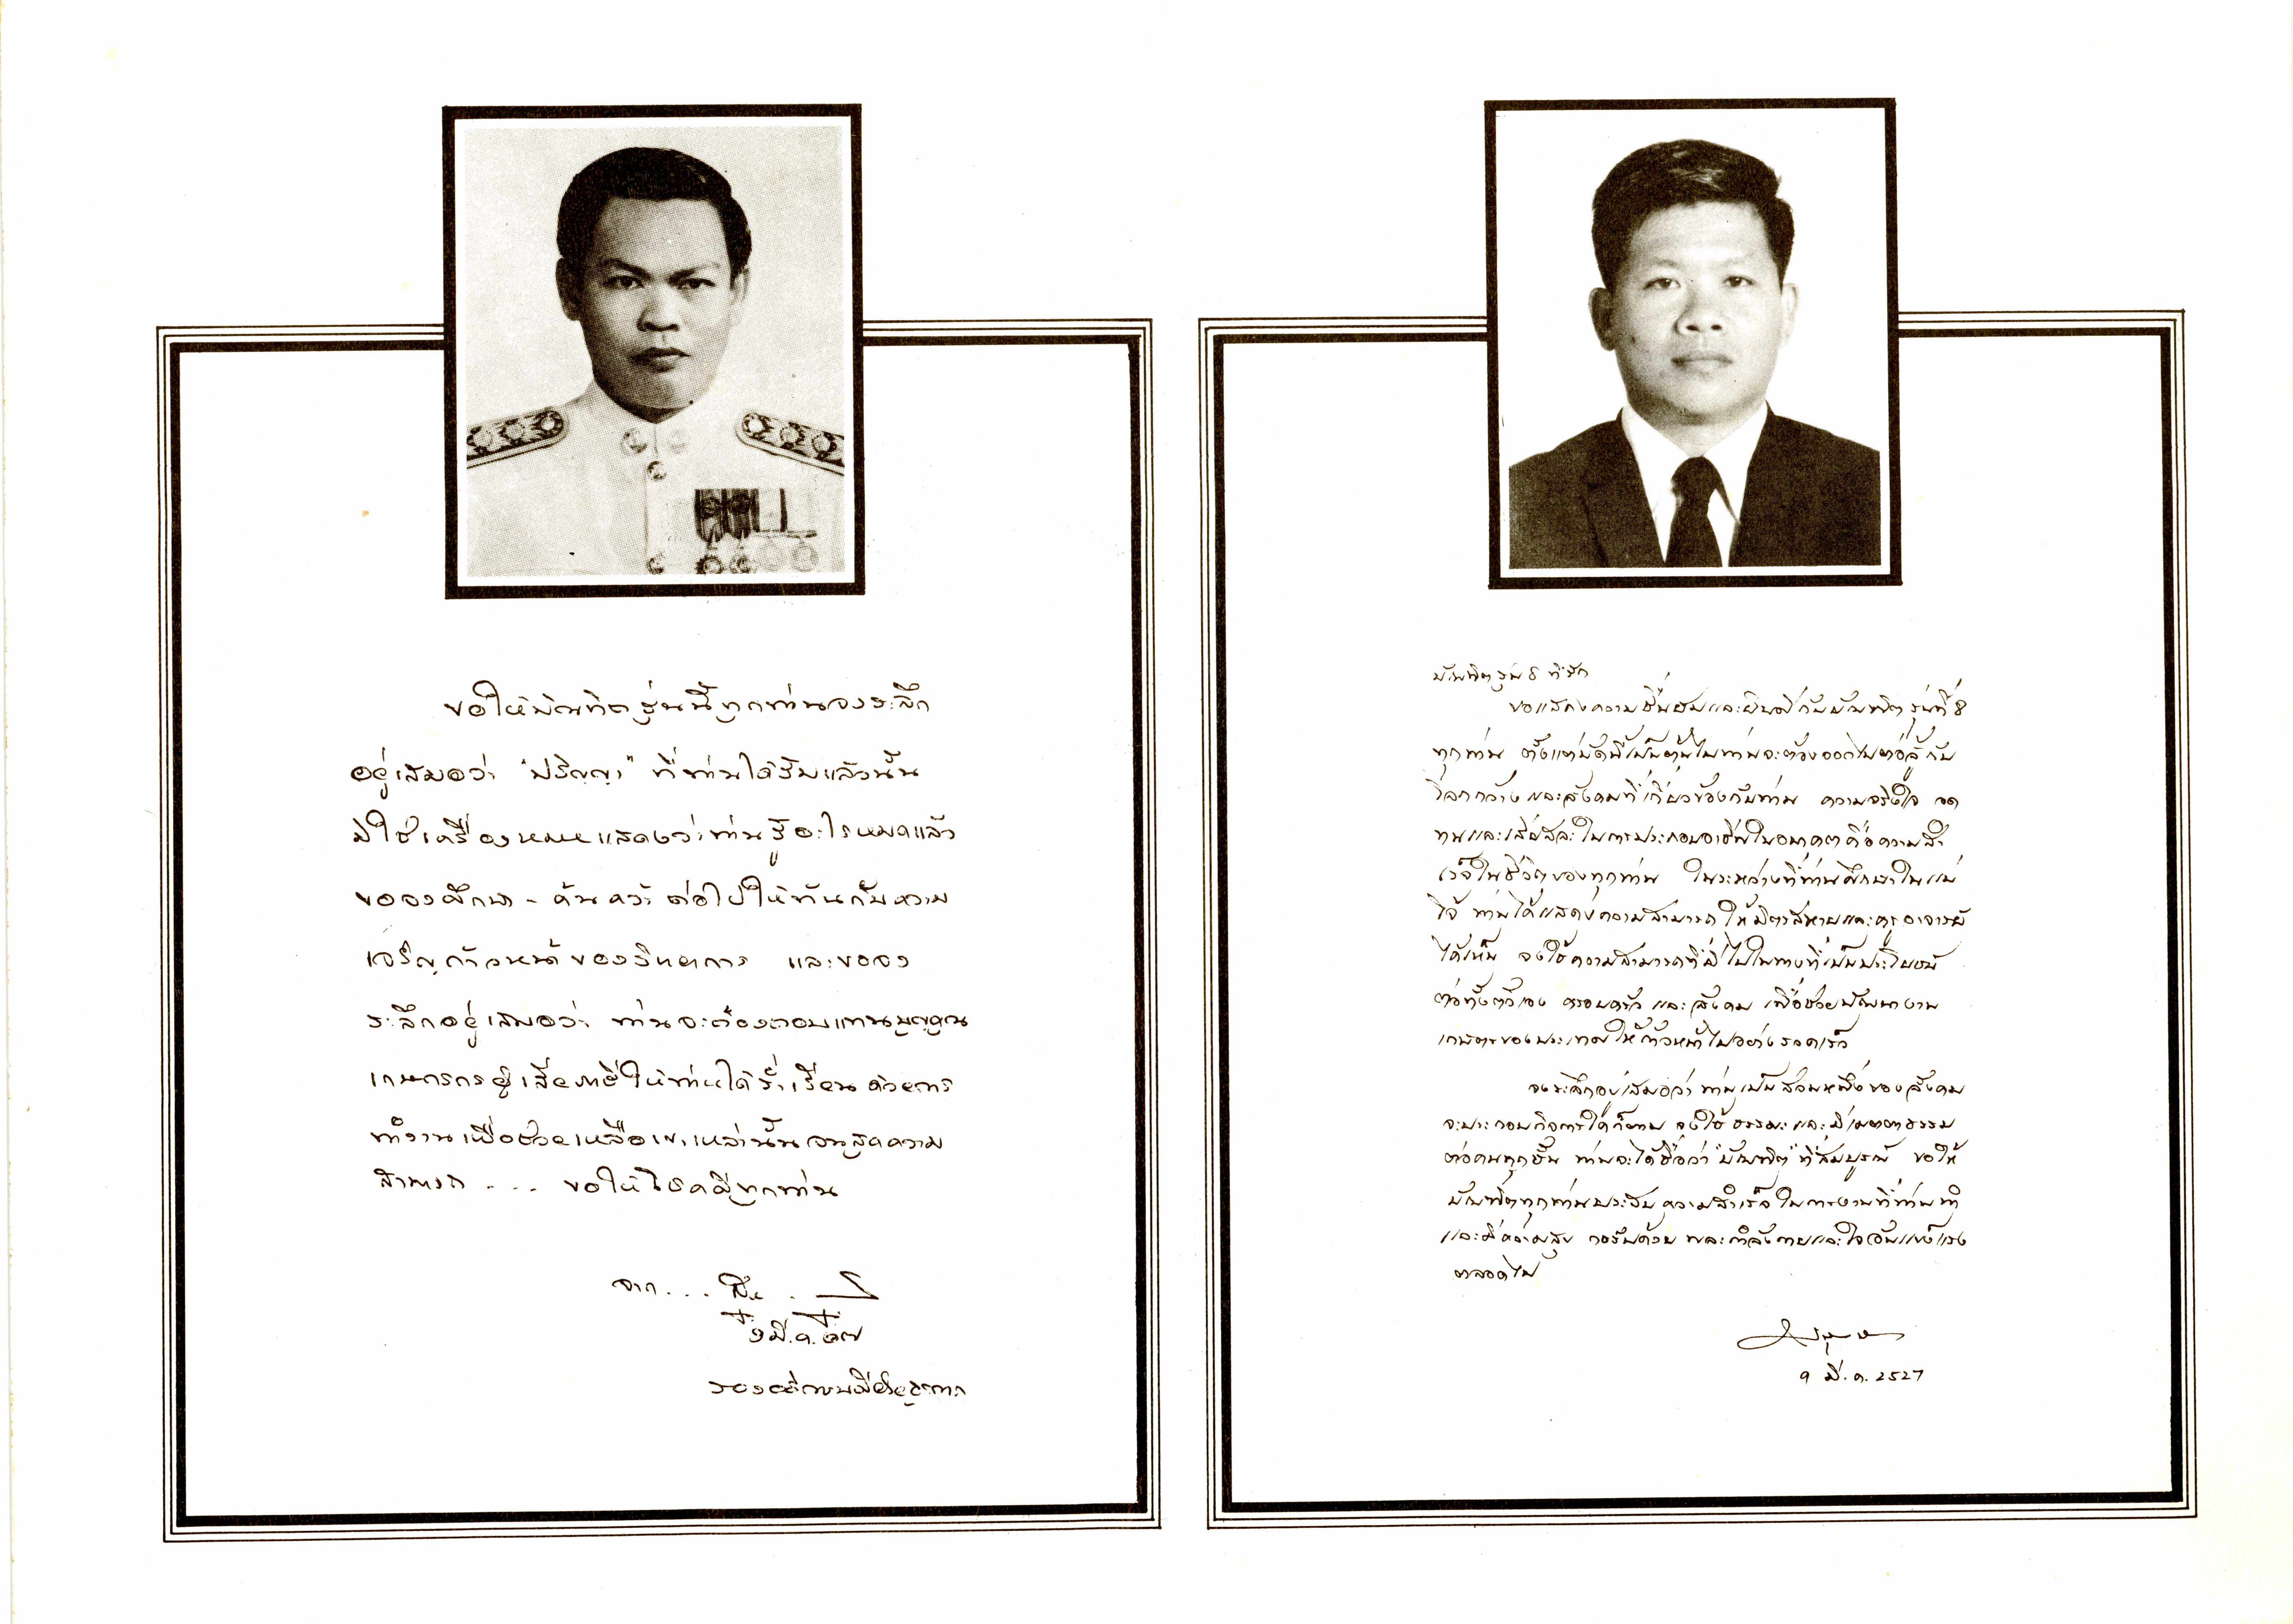 ขอให้บัณฑิตรุ่นนี้ทุกท่านจงระลึก
อยู่เสมอว่า "ปริญญา" ที่ท่านได้รับแล้วนั้น
มิใช่เครื่องหมายแสดงว่าท่านรู้อะไรหมดแล้ว
ขอจงศึกษา - ค้นคว้า ต่อไปให้ทันกับความ
เจริญก้าวหน้าของวิทยาการ และขอจง
ระลึกอยู่เสมอว่า ท่านจะต้องตอบแทนบุญคุณ
เกษตรกรผู้เสียภาษีให้ท่านได้ร่ำเรียน ด้วยการ
ทำงานเพื่อช่วยเหลือเขาเหล่านั้นจนสุดความ
สามารถ . . . ขอให้โชคดีทุกท่าน
จาก . . .
๑ มี.ค. ๒๗
รองอธิการบดี
บัณฑิตรุ่น 8 ที่รัก
ขอแสดงความชื่นชมและยินดีกับบัณฑิตรุ่นที่ 8
ทุกท่าน ตั้งแต่บัดนี้เป็นต้นไปท่านจะต้องออกไปต่อสู้กับ
โลกกว้าง และสังคมที่เกี่ยวข้องกับท่าน ความจริงใจ อด
ทนและเสียสละในการประกอบอาชีพในอนาคตคือความสำ
เร็จในชีวิตของทุกท่าน ในระหว่างที่ท่านศึกษาในแม่
โจ้ ท่านได้แสดงความสามารถให้มิตรสหายและครูอาจารย์
ได้เห็น จงใช้ความสามารถที่มีไปในทางที่เป็นประโยชน์
ต่อทั้งตัวเอง ครอบครัว และสังคม เพื่อช่วยพัฒนางาน
เกษตรของประเทศให้ก้าวหน้าไปอย่างรวดเร็ว
จงระลึกอยู่เสมอว่า ท่านเป็นส่วนหนึ่งของสังคม
จะประกอบกิจการใดก็ตาม จงใช้ธรรมะและมีเมตตาธรรม
ต่อคนทุกชั้น ท่านจะได้ชื่อว่า "บัณฑิต" ที่สมบูรณ์ ขอให้
บัณฑิตทุกท่านประสบความสำเร็จในการงานที่ท่านทำ
และมีความสุข กอรปด้วย พละกำลังกายและใจอันแข็งแรง
ตลอดไป
๑ มี.ค. 2527